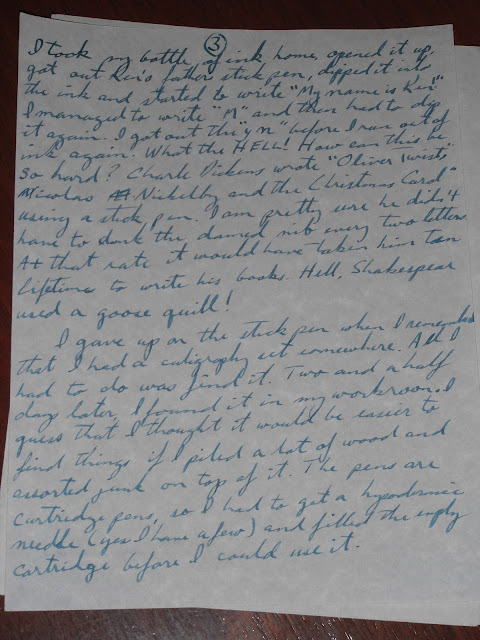 3
I took my bottle of ink home, opened it up,
got out Ken's father stick pen, dipped it into
the ink and started to write "My name is Ken"
I managed to write "M" and then had to dip
it again. I got out the "y n" before I ran out of
ink again. What the HELL! How can this be
so hard? Charle Dickens wrote "Oliver Twist"
Nicolas Nickelby and the Christmas Carol"
using a stick pen. I am pretty sure he didn't
have to dunk the damed nib every two letters.
At that rate it would have taken him ten
lifetime to write his books. Hell, Shakespear
used a goose quill!
I gave up on the stick pen when I remembered
that I had a caligraphy set somewhere. All I
had to do was find it. Two and a half
days later, I found it in my workroom. I
guess that I thought it would be easier to
find things if I piled a lot of wood and
assorted junk on top of it. The pens are
curtridge pens, so I had to get a hypodermic
needle, (yes I have a few) and filled the empty
cartridge before I could use it.